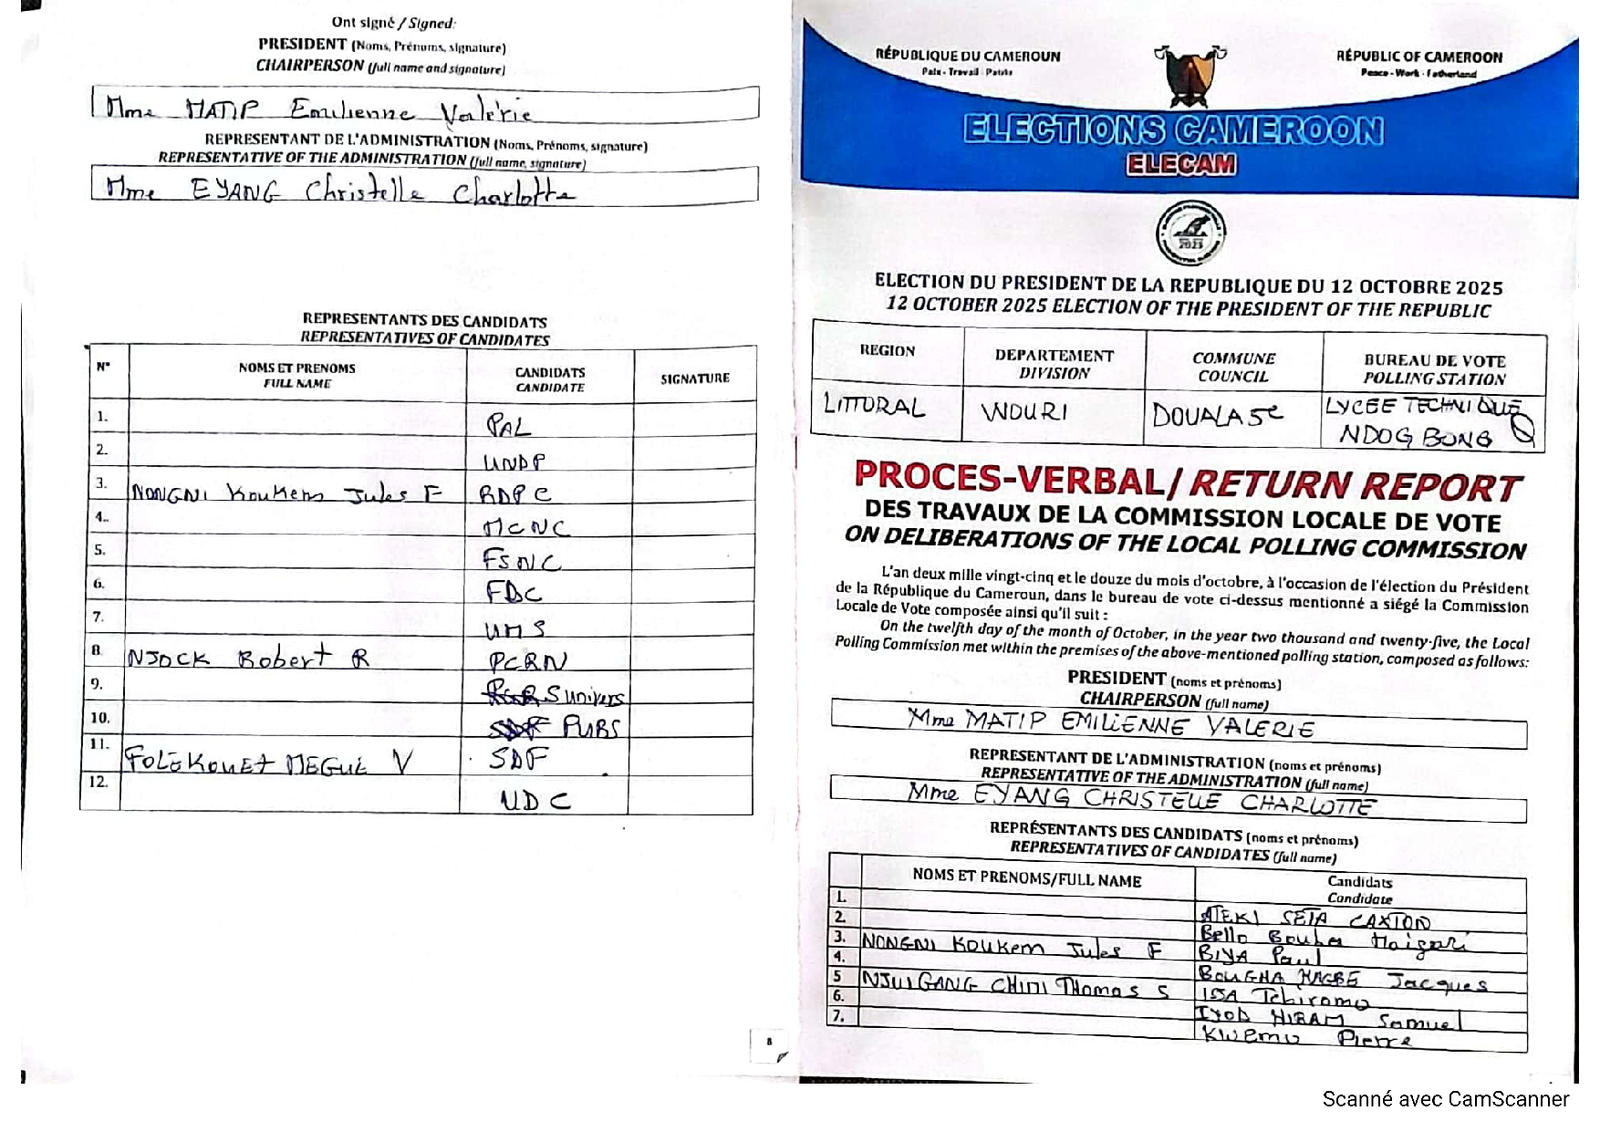 Ont signé / Signed:
PRESIDENT (Noms, Prénoms, signature)
CHAIRPERSON (full name and signature)
Mme MATIP Emilienne Valérie
REPRESENTANT DE L'ADMINISTRATION (Noms, Prénoms, signature)
REPRESENTATIVE OF THE ADMINISTRATION (full name, signature)
Mme EYANG Christelle Charlotte
REPRESENTANTS DES CANDIDATS
REPRESENTATIVES OF CANDIDATES
N° NOMS ET PRENOMS FULL NAME CANDIDATS CANDIDATE SIGNATURE
1. PAL
2. UNDP
3. NONGNI Koukem Jules F RDPC
4.. MCNC
5. FSNC
6. FDC
7. UMS
8. NJOCK Robert R PCRN
9. Univers
10. PURS
11. FOLEKOUET MEGUE V SDF
12. UDC
8
RÉPUBLIQUE DU CAMEROUN
Paix - Travail - Patrie
RÉPUBLIC OF CAMEROON
Peace - Work - Fatherland
ELECTIONS CAMEROON
ELECAM
2025
ELECTION DU PRESIDENT DE LA REPUBLIQUE DU 12 OCTOBRE 2025
12 OCTOBER 2025 ELECTION OF THE PRESIDENT OF THE REPUBLIC
REGION DEPARTEMENT DIVISION COMMUNE COUNCIL BUREAU DE VOTE POLLING STATION
LITTORAL WOURI DOUALA 5e LYCEE TECHNIQUE
NDOG BONG
PROCES-VERBAL/ RETURN REPORT
DES TRAVAUX DE LA COMMISSION LOCALE DE VOTE
ON DELIBERATIONS OF THE LOCAL POLLING COMMISSION
L'an deux mille vingt-cinq et le douze du mois d'octobre, à l'occasion de l'élection du Président
de la République du Cameroun, dans le bureau de vote ci-dessus mentionné a siégé la Commission
Locale de Vote composée ainsi qu'il suit :
On the twelfth day of the month of October, in the year two thousand and twenty-five, the Local
Polling Commission met within the premises of the above-mentioned polling station, composed as follows:
PRESIDENT (noms et prénoms)
CHAIRPERSON (full name)
Mme MATIP EMILIENNE VALERIE
REPRESENTANT DE L'ADMINISTRATION (noms et prénoms)
REPRESENTATIVE OF THE ADMINISTRATION (full name)
Mme EYANG CHRISTELLE CHARLOTTE
REPRÉSENTANTS DES CANDIDATS (noms et prénoms)
REPRESENTATIVES OF CANDIDATES (full name)
NOMS ET PRENOMS/FULL NAME Candidats
Candidate
1. ATEKI SETA CAXTON
2. Bello Bouba Maigari
3. NONGNI Koukem Jules F BIYA Paul
4. BOUGHA HAGBE Jacques
5 NJUIGANG CHIMI Thomas S ISSA Tchiroma
6. IYOD HIRAM Samuel
7. KWEMO Pierre
Scanné avec CamScanner